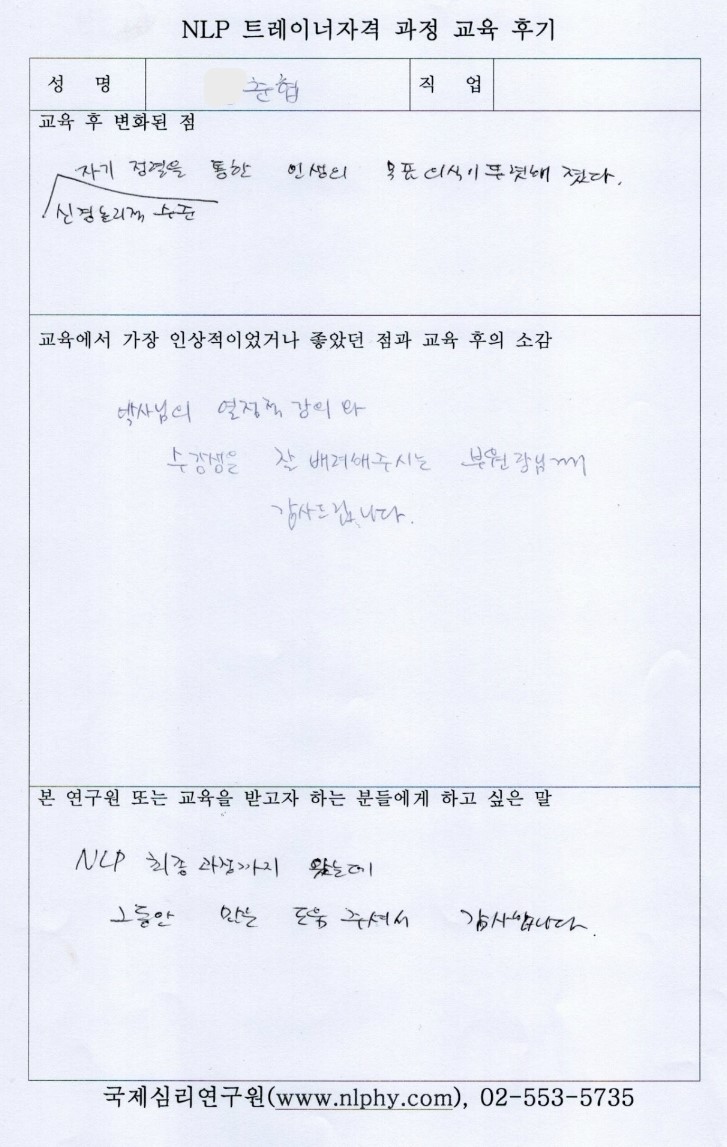 NLP 트레이너자격 과정 교육 후기
성 명 춘협 직 업
교육 후 변화된 점
자기 정렬을 통한 인생의 목표 의식이 뚜렷해 졌다.
신경논리적 수준
교육에서 가장 인상적이었거나 좋았던 점과 교육 후의 소감
박사님의 열정적 강의와
수강생을 잘 배려해주시는 부원장님께
감사드립니다.
본 연구원 또는 교육을 받고자 하는 분들에게 하고 싶은 말
NLP 최종 과정까지 왔는데
그동안 많은 도움 주셔서 감사합니다.
국제심리연구원(www.nlphy.com), 02-553-5735